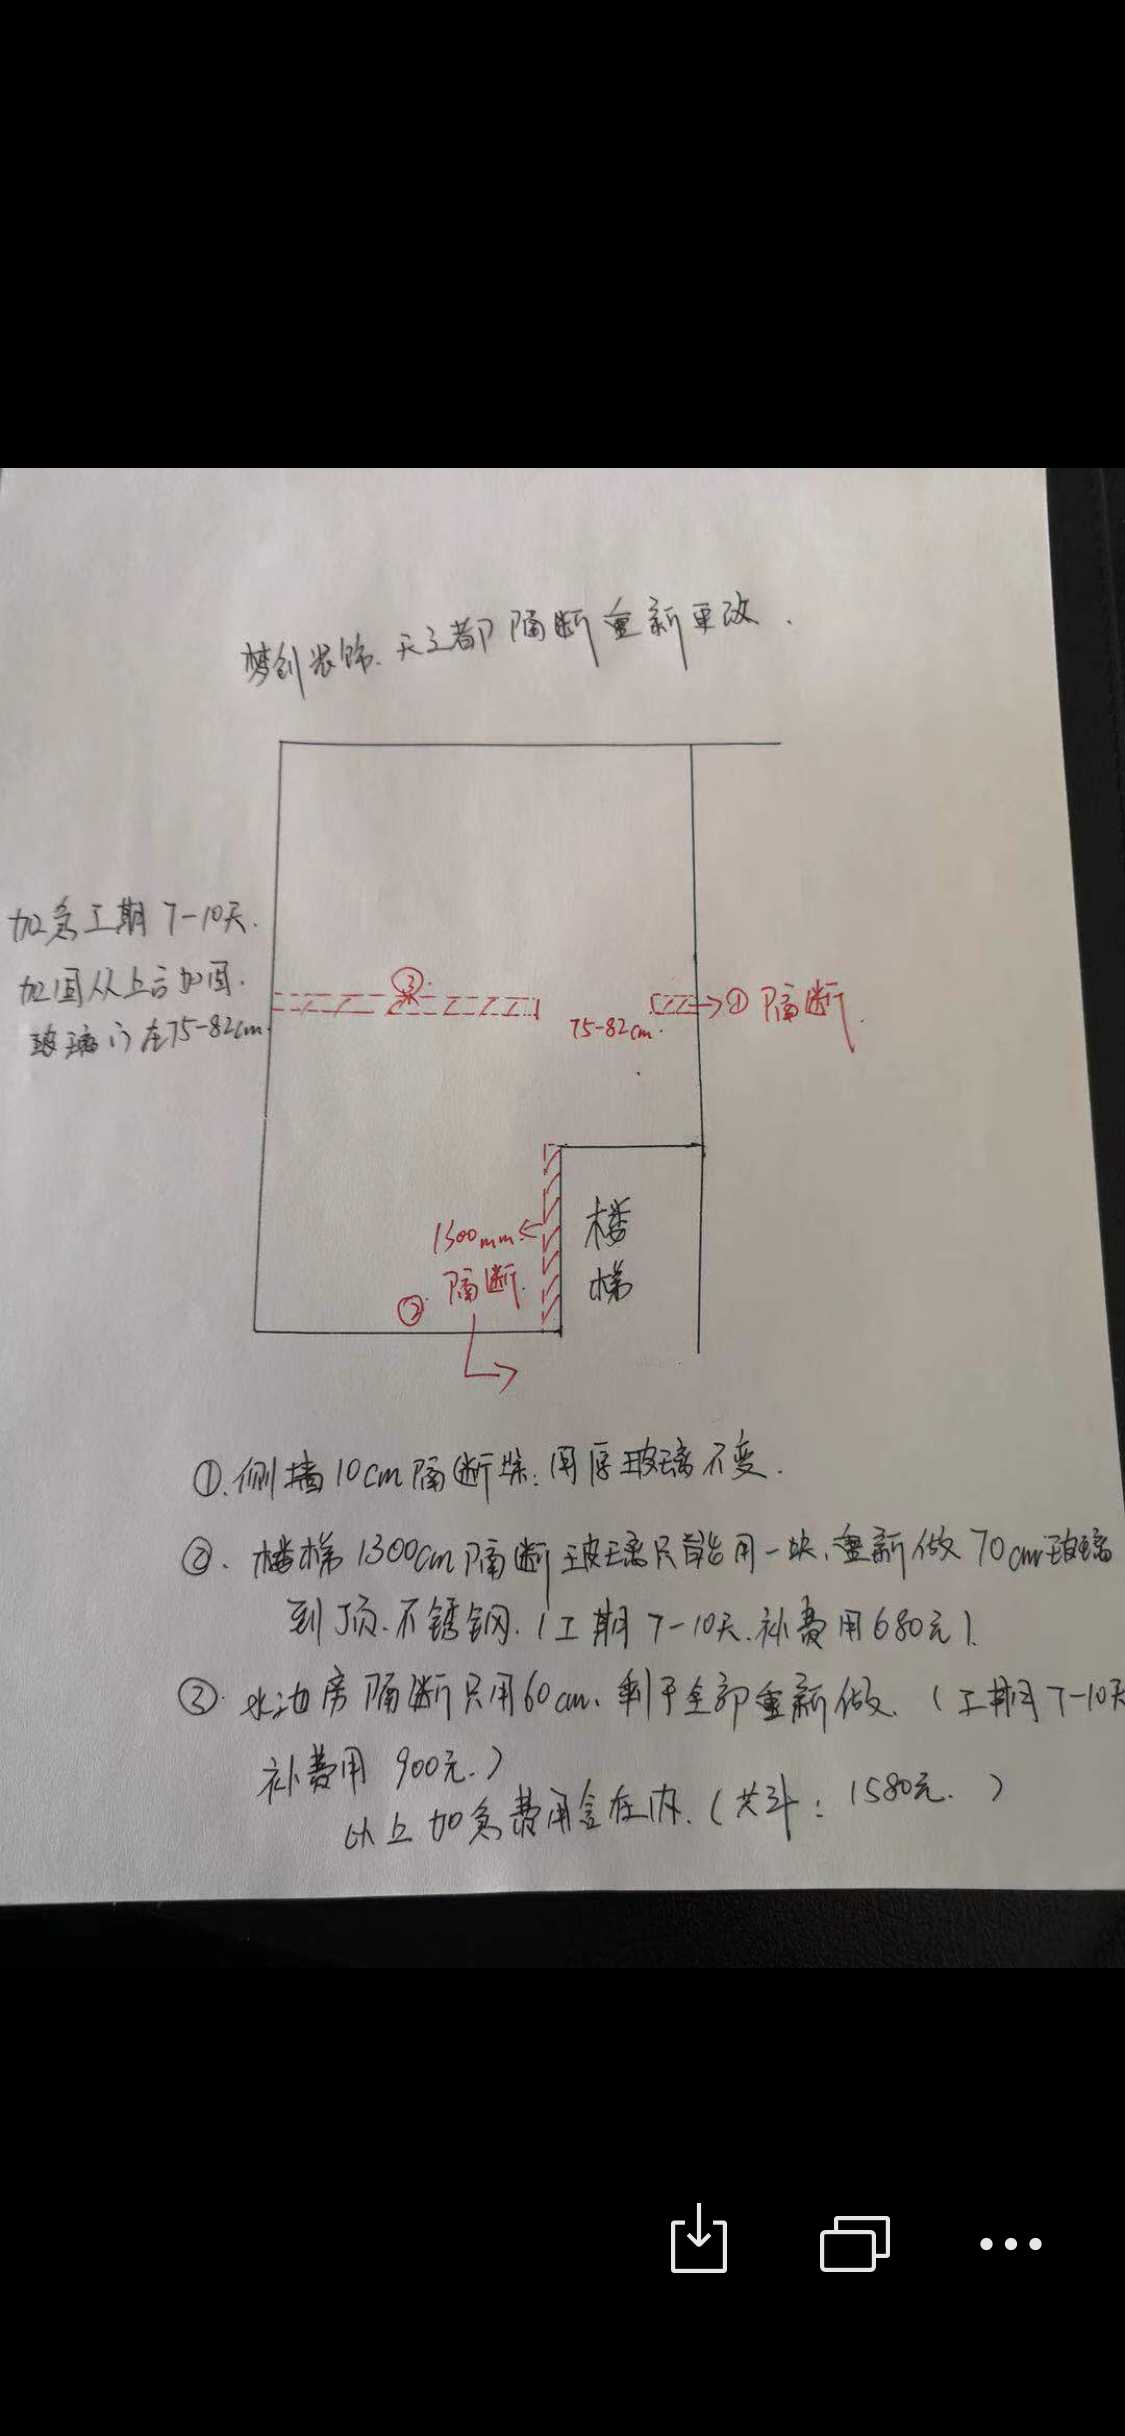 梦创装饰. 天立都隔断重新更改.
加急工期 7-10天.
加固从上言加固.
玻璃门在75-82cm.
③
75-82cm.
① 隔断.
1300mm
② 隔断.
楼
梯
①. 侧墙10cm隔断拆: 用厚玻璃不变.
②. 楼梯1300cm隔断玻璃只能用一块、重新做70cm玻璃
到顶. 不锈钢. (工期7-10天. 补费用680元).
③. 房隔断只用60cm、剩于全部重新做. (工期7-10天
补费用 900元.)
以上加急费用含在内. (共计: 1580元. )